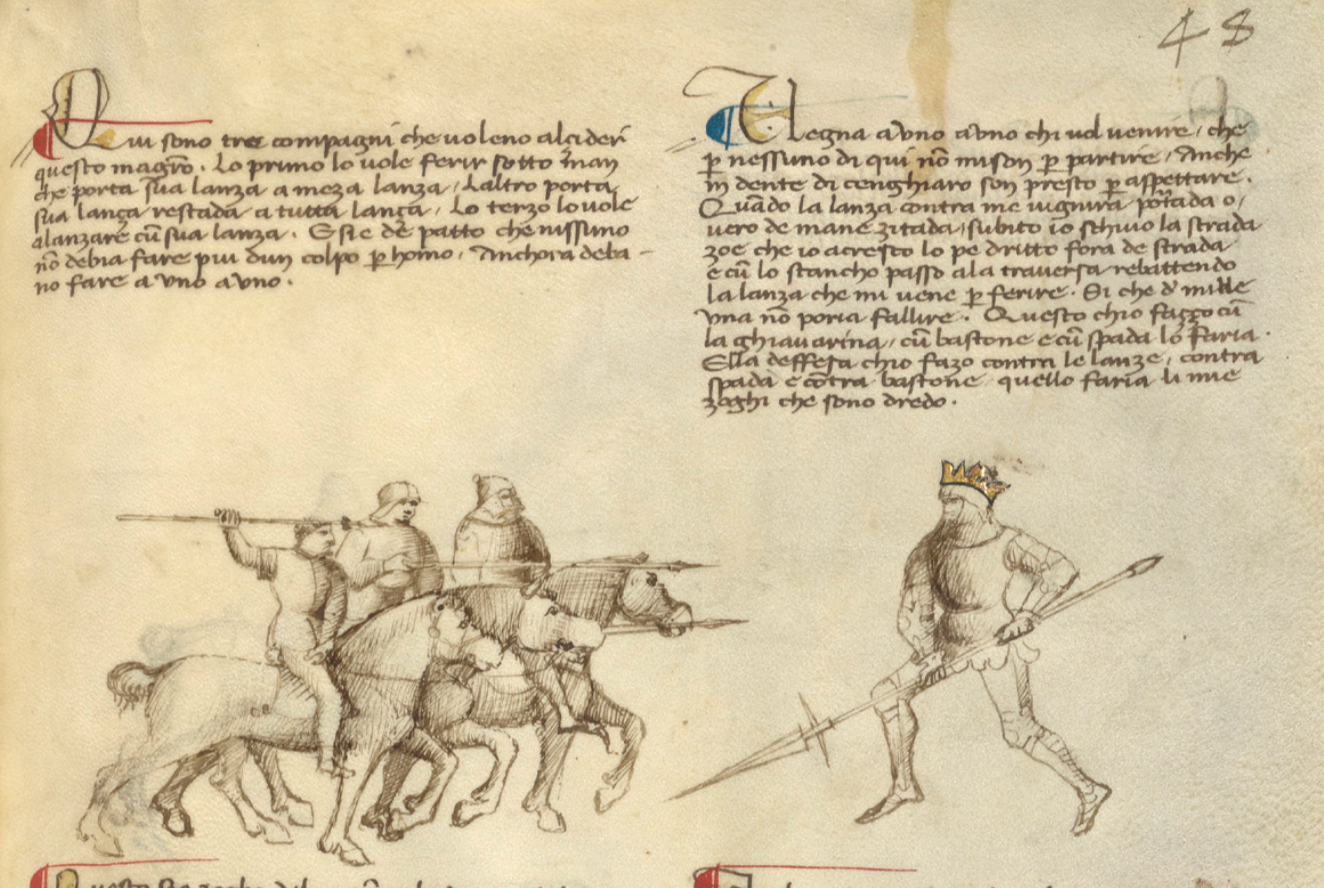 48
Qui sono tre compagni che voleno alcider
questo magrō. Lo primo lo vole ferir sotto man
che porta sua lanza a meza lanza, Laltro porta
sua lança restada a tutta lança, Lo terzo lo vole
alanzare cū sua lanza. E si e dē patto che nissuno
nō debia fare piu dun colpo p̲ homo, Anchora deba-
no fare a uno a uno.
Uegna a uno a uno chi vol venire, che
p̲ nessuno di qui nō mi son p̲ partire, Anche
in dente di cenghiaro son presto p̲ aspettare.
Quādo la lanza contra me vignira portada o,
vero de mane zitada, subito io schivo la strada
zoe che io acresco lo pe dritto fora de strada
e cū lo stancho passo ala traversa rebattendo
la lanza che mi vene p̲ ferire. Si che d' mille
una nō poria fallire. Questo chio fazzo cū
la ghiavarina, cū bastone e cū spada lo faria.
Ella deffesa chio fazo contra le lanze, contra
spada e cōtra bastone quello faria li mie
zoghi che sono dredo.